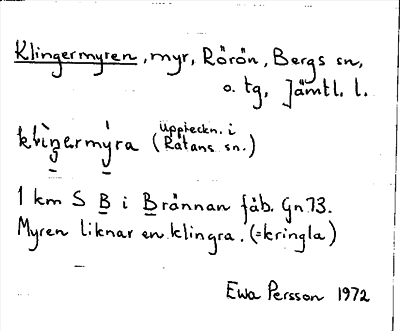 Klingermyren, myr, Rörön, Bergs sn,
o. tg, Jämtl. l.
kliŋermy̱ra (Uppteckn. i
Ratans sn.)
1 km S B̲ i B̲rännan fäb. Gn 73.
Myren liknar en klingra. (=kringla)
Ewa Persson 1972